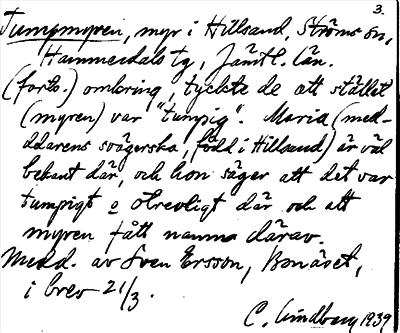 3.
Tumpmyren, myr i Hillsand, Ströms sn,
Hammerdals tg, Jämtl. län.
(forts.) omkring, tyckte de att stället
(myren) var "tumpig". Maria (med-
ddarens svägerska, född i Hillsand) är väl
bekant där, och hon säger att det var
tumpigt o otrevligt där och att
myren fått namn därav.
Medd. av Sven Ersson, Bonäset,
i brev 21/3.
C. Lindberg 1939